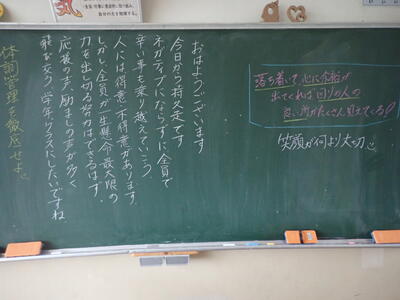 おはようございます
今日から持久走です
ネガティブにならずに全員で
辛い事も乗り越えていこう
人には得意不得意があります
しかし、全員が一生懸命最大限の
力を出し切る努力はできるはず。
応援の声、励ましの声が多く
飛び交う学年、クラスにしたいですね
体調管理を徹底せよ
落ち着いて心に余裕が
出てくれば回りの人の
良い所がたくさん見えてくる!
笑顔が何より大切